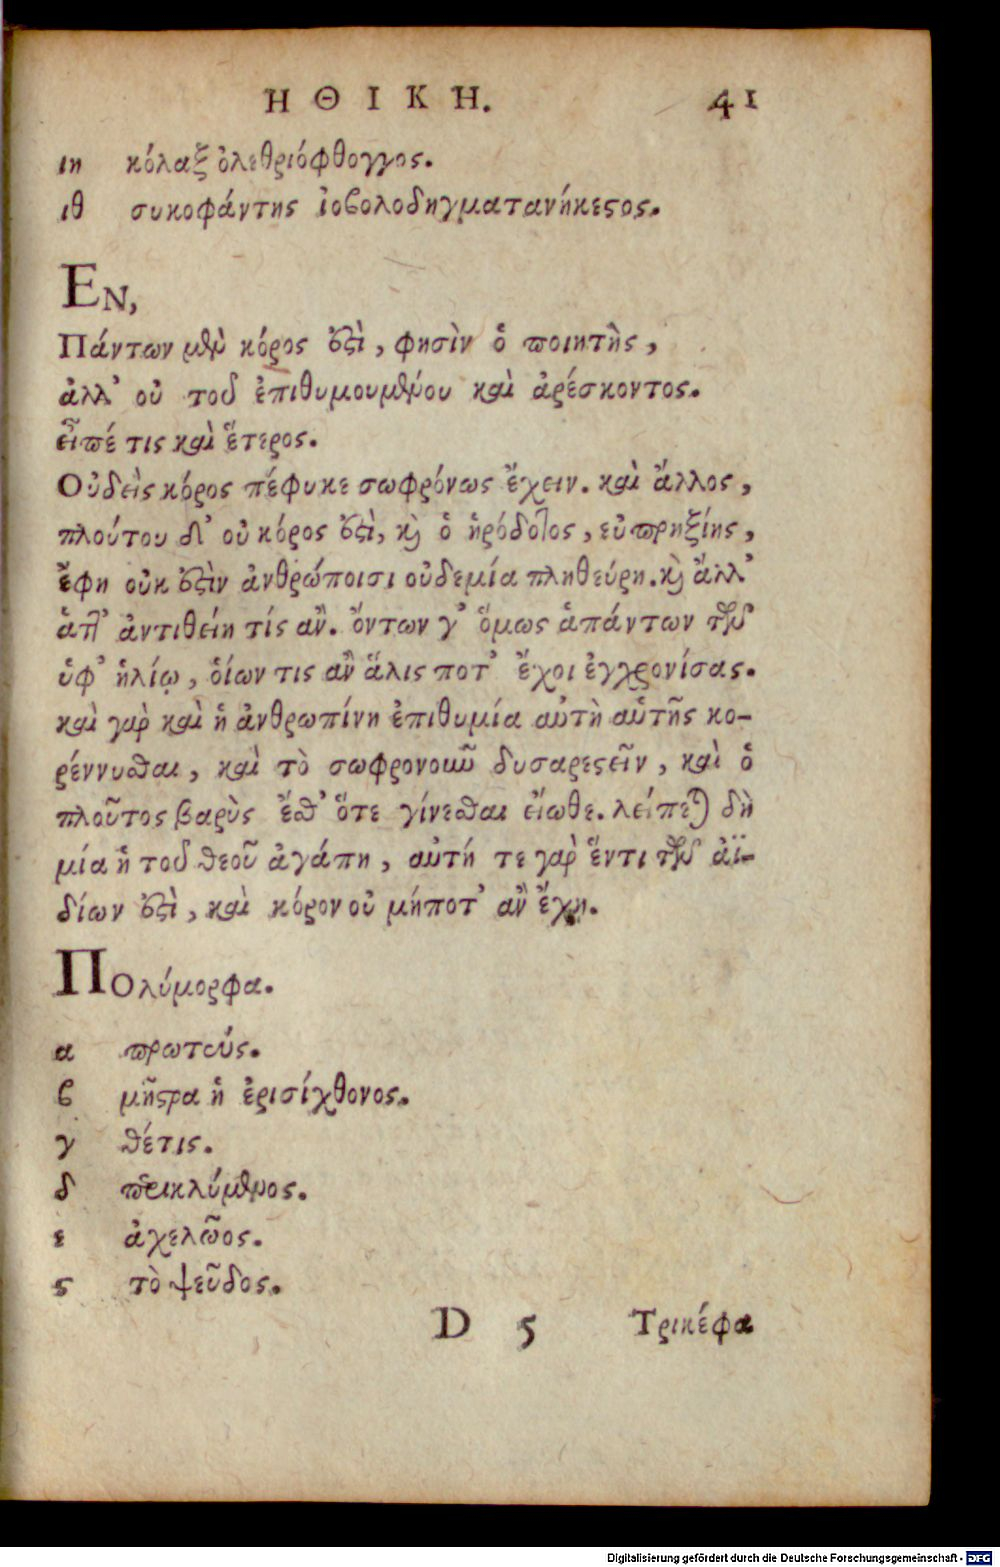 ΗΘΙΚΗ. 41
ιη κόλαξ ὀλεθριόφθογγος.
ιθ συκοφάντης ἰοβολοδηγματανήκεστος.
ΕΝ,
Πάντων μὲν κόρος ἐστὶ, φησὶν ὁ ποιητὴς,
ἀλλ' οὐ τοῦ ἐπιθυμουμένου καὶ ἀρέσκοντος.
εἶπέ τις καὶ ἕτερος.
Οὐδεὶς κόρος πέφυκε σωφρόνως ἔχειν. καὶ ἄλλος,
πλούτου δ' οὐ κόρος ἐστὶ, καὶ ὁ ἡρόδοτος, εὐπρηξίης,
ἔφη οὐκ ἐστὶν ἀνθρώποισι οὐδεμία πληθεύρη. καὶ ἄλλ'
ἄττ' ἀντιθείη τίς ἂν. ὄντων γ' ὅμως ἁπάντων τῶν
ὑφ' ἡλίῳ, ὁίων τις ἂν ἅλις ποτ' ἔχοι ἐγχρονίσας.
καὶ γὰρ καὶ ἡ ἀνθρωπίνη ἐπιθυμία αὐτὴ αὑτῆς κο-
ρέννυσθαι, καὶ τὸ σωφρονοιῦν δυσαρεστεῖν, καὶ ὁ
πλοῦτος βαρὺς ἔσθ' ὅτε γίνεσθαι εἴωθε. λείπεται δὴ
μία ἡ τοῦ θεοῦ ἀγάπη, αὐτή τε γὰρ ἕντι τῶν ἀϊ-
δίων ἐστὶ, καὶ κόρον οὐ μήποτ' ἂν ἔχη.
ΠΟλύμορφα.
α πρωτεύς.
β μήστρα ἡ ἐρισίχθονος.
γ θέτις.
δ περικλύμενος.
ε ἀχελῶος.
ϛ τὸ ψεῦδος.
D 5 Τρικέφα
Digitalisierung gefördert durch die Deutsche Forschungsgemeinschaft - DFG